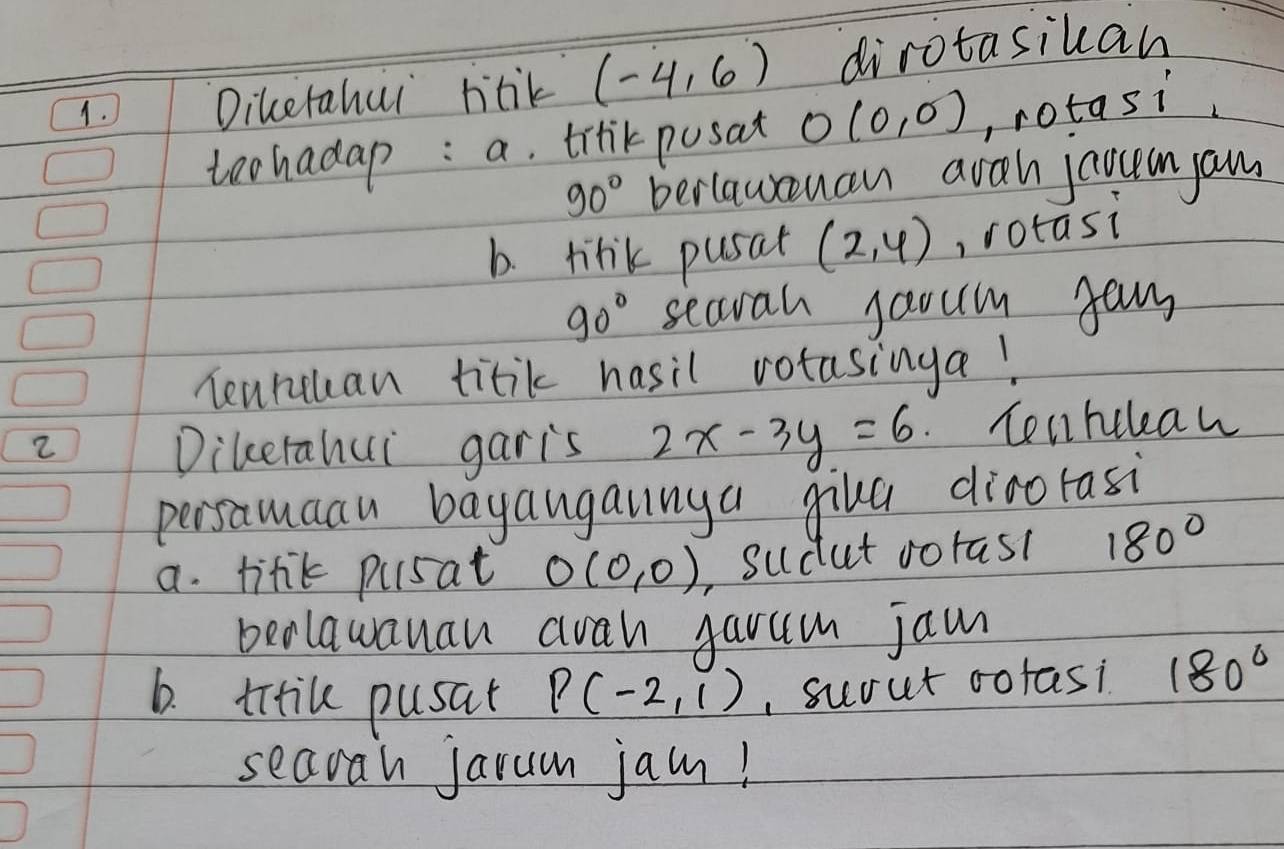 1. Diketahui titik (-4,6) dirotasikan
terhadap : a. titik pusat O(0,0), rotasi
90° berlawanan arah jarum jam
b. titik pusat (2,4), rotasi
90° searah jarum jam
Tentukan titik hasil rotasinya!
2 Diketahui garis 2x-3y=6. Tentukan
persamaan bayangannya jika dirotasi
a. titik pusat O(0,0), sudut rotasi 180°
berlawanan arah jarum jam
b. titik pusat P(-2,1), surut rotasi 180°
searah jarum jam!